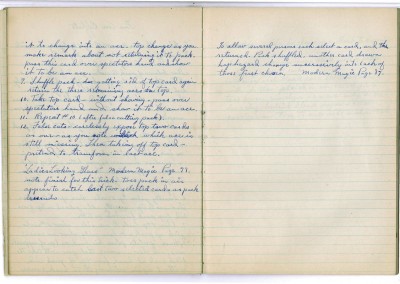 it to change into an ace. Top change as you
make remark about not returning it to pack.
pass this card over spectators hand and show
it to be an ace.
9. Shuffle pack - so getting with of top card again
return the three remaining aces on top.
10. Take top card - without showing - pass over
spectators hand and show it to be an ace
11. Repeat #10 (after false cutting pack).
12. False cuts - carelessly expose top two cards
as one - as you ask which ace is
still missing. Then taking off top card -
pretend to transform in
"Ladies Looking Glass" Modern Magic Page 77.
note finish for this trick. toss pack in air
appear to catch last two selected cards as pack
descends
To allow several persons each select a card, and the
returned. Pack shuffled, another card drawn
haphazard change successively into each of
those first chosen. Modern Magic Page 87.